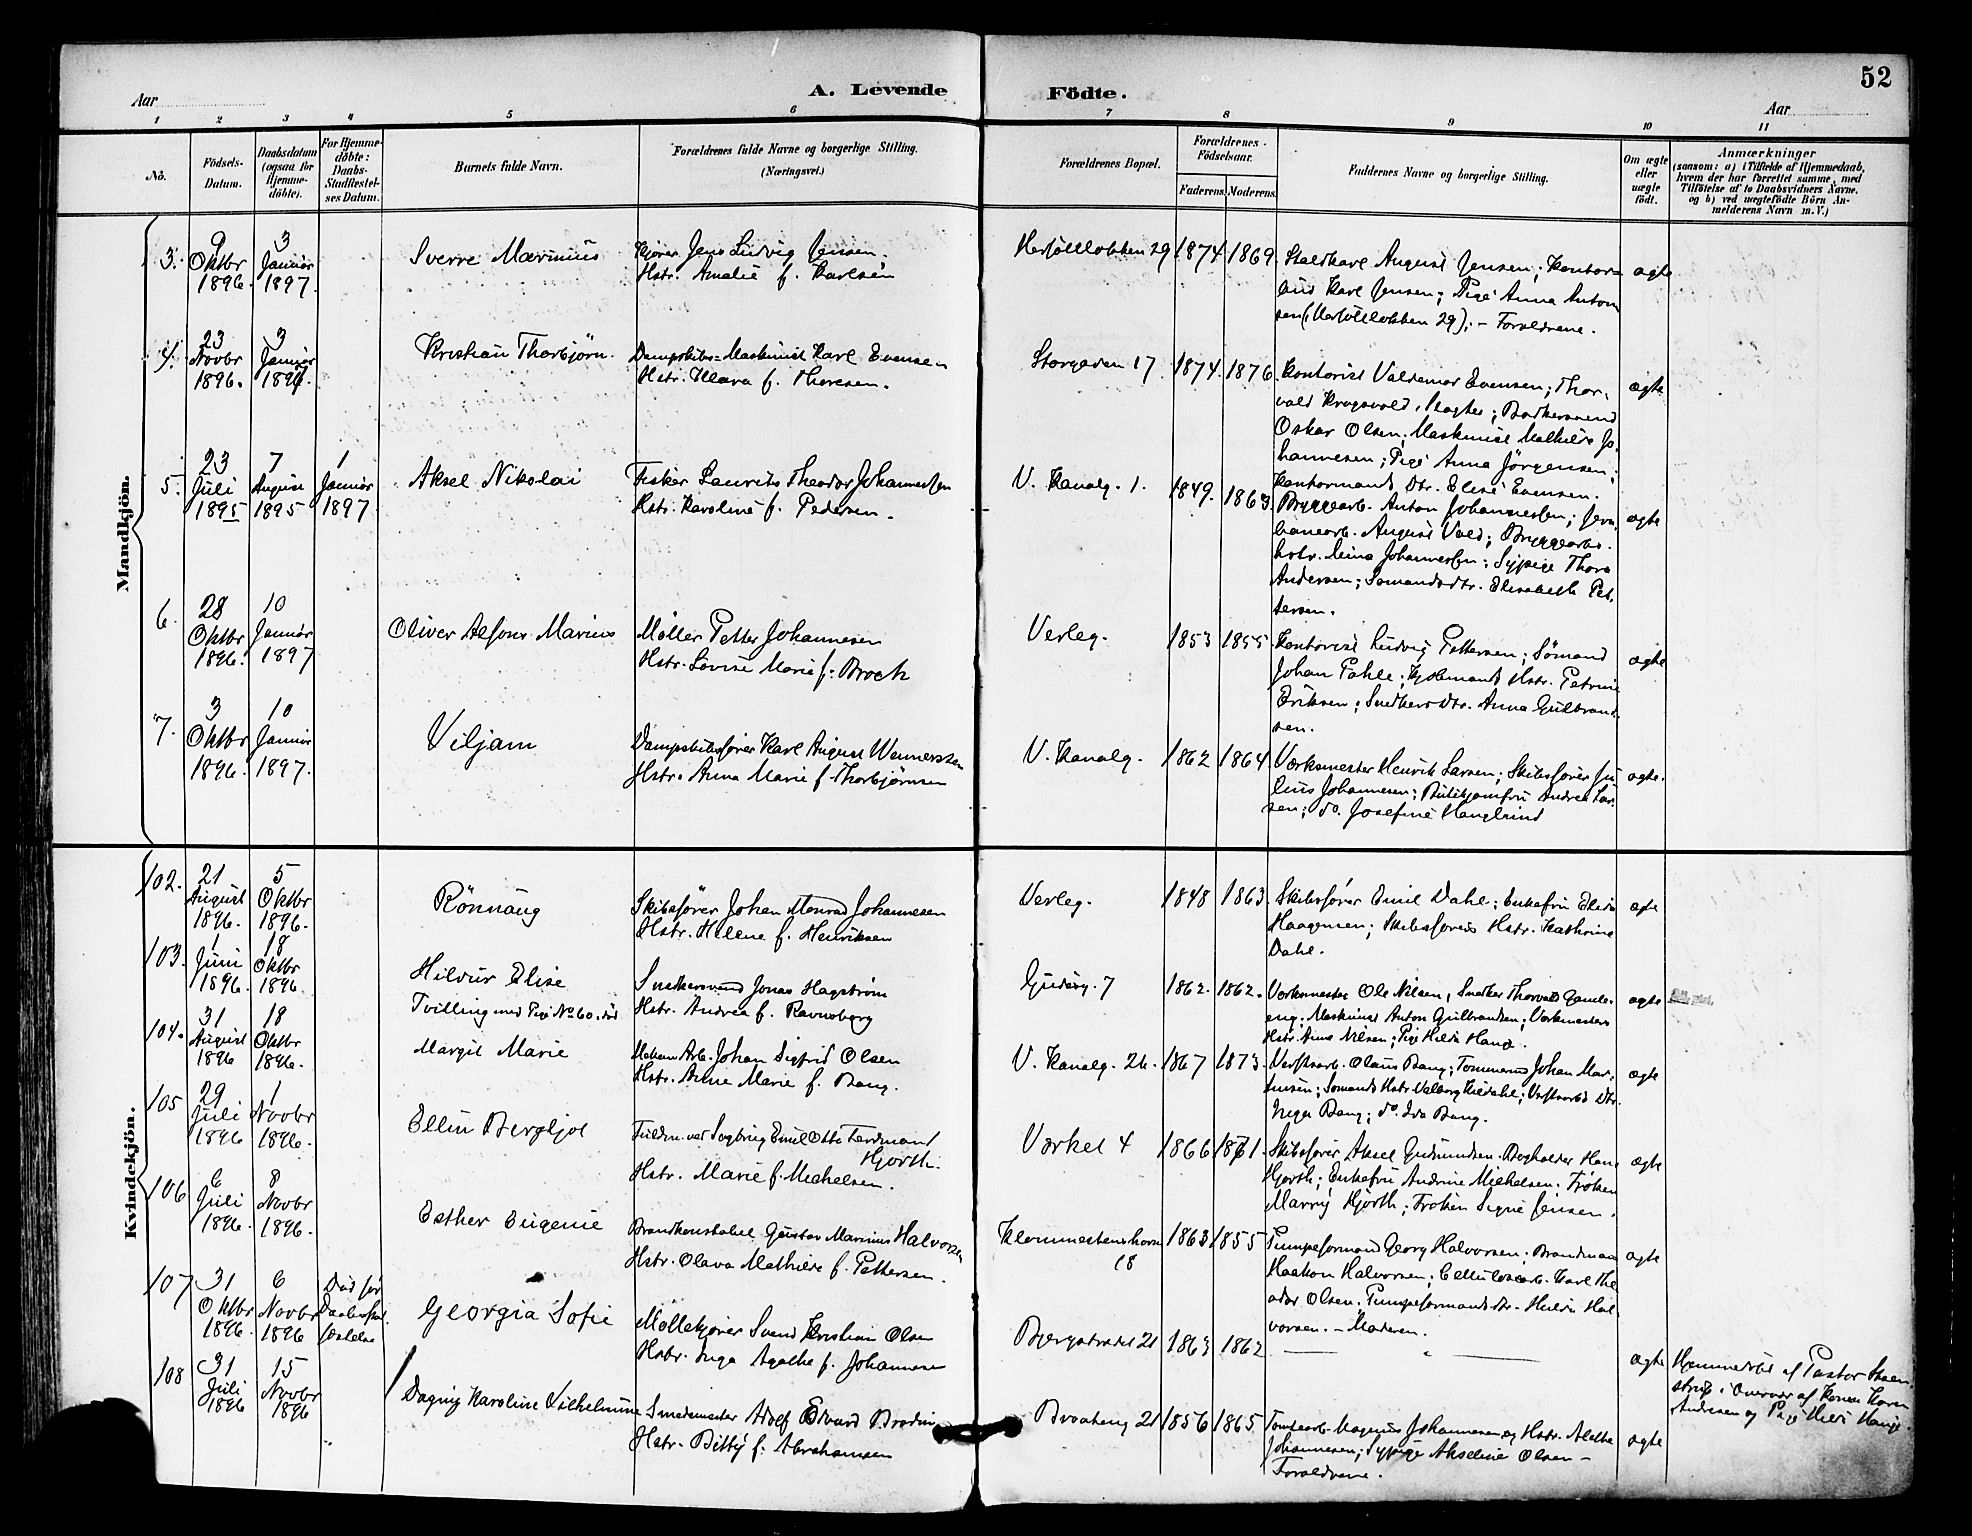 52
A. Levende Födte.
Aar
Aar
1 2 3 4 5 6 7 8 9 10 11
No.
Födsels-Datum.
Daabsdatum (ogsaa for Hjemmedöbte).
For Hjemmedöbte: Daabs-Stadfæstelses Datum.
Barnets fulde Navn.
Forældrenes fulde Navne og borgerlige Stilling.
(Næringsvei.)
Forældrenes Bopæl.
Forældrenes Födselsaar.
Faderens. Moderens.
Faddernes Navne og borgerlige Stilling.
Om ægte eller uægte födt.
Anmærkninger
(saasom: a) i Tilfælde af Hjemmedaab, hvem der har forrettet samme, med Tilföielse af to Daabsvidners Navne, og b) ved uægtefödte Börn Anmelderens Navn m. V.)
Mandkjön.
3. 9 Oktbr 1896. 3 Januar 1897.
Sverre Marinius
Kjører Jens Ludvig Jensen,
Hstr. Amalie f. Karlsen
29 1874 1869.
Staldkarl August Jensen; Kontor-
bud Karl Jensen; Pige Anna Anton
sen 29); - Forældrene.
ægte
4. 23 Novbr 1896. 3 Januar 1897.
Kristian Thorbjörn.
Dampskibs-Maskinist Karl Evensen
Hstr. Klara f. Thoresen.
Storgaden 17 1874. 1876.
Kontorist Valdemar Evensen; Thor-
vald Krogsvold, Slagter; Bødkersvend
Oskar Olsen; Maskinist Mathilde Jo-
hannesen; Pige Anna Jörgensen;
Kontormands Dtr. Elise Evensen.
ægte
5. 23 Juli 1895 7 August 1895 1 Januar 1897
Aksel Nikolai
Fisker Laurits Theodor Johannessen
Hstr. Karoline f. Pedersen.
V. Kanalg. 1. 1849. 1863.
Bryggearb. Anton Johannessen; Jern-
banearb. August Vold; Bryggearb.
Hstr. Mina Johannessen; Sypige Thora
Andersen; Sömandsdtr. Elisabeth Pet-
tersen.
ægte
6. 28 Oktbr 1896. 10 Januar 1897
Oliver Alfons Marius
Møller Petter Johannesen
Hstr. Lovise Marie f. Brock
Verleg. 1853 1855.
Kontorist Ludvig Pettersen; Sömand
Johan Pahle; Hstr. Petrine
Eriksen; Snedkers Dtr. Anna Gulbrand-
sen.
ægte
7. 3 Oktbr 1896. 10 Januar 1897.
Viljam
Dampskibsfører Karl August Wennersten
Hstr. Anna Marie f. Thorbjørnsen
V. Kanalg. 1862 1864
Værksmester Henrik Larsen; Skibsfører Ju-
lius Johannesen; Butikjomfru Andrea Lar-
sen; do. Josefine Hauglund
ægte.
Kvindekjön.
102. 21 August 1896. 5 Oktbr 1896.
Rönnaug
Skibsfører Johan Monrad Johannesen
Hstr. Helene f. Henriksen
Verleg. 1848 1863.
Skibsfører Emil Dahl; Enkefru Elise
Haagensen; Skibsførers Hstr. Kathrine
Dahl.
ægte
103. 1 Juni 1896. 18 Oktbr 1896.
Hildur Elise
Tvilling med Pige No 60, död
Snedkersvend Jonas Hagström
Hstr. Andrea f. Ravnsborg
7 1862. 1862.
Værksmester Ole Nilsen, Snedker Thorvald
Maskinist Anton Gulbrandsen; Værkmesters
Hstr. Anna Nilsen; Pige Hilda
ægte
104. 31 August 1896 18 Oktbr 1896.
Margit Marie
Mekan Arb. Johan Sigfrid Olsen
Hstr. Anna Marie f. Bang.
V. Kanalg. 26. 1867 1873.
Verftsarb. Olaus Bang; Tømmerm. Johan Mar-
tinsen; Sømands Hstr. Valborg Verftsarbs Dtr.
Inga Bang; do. Ida Bang.
ægte
105 29 Juli 1896 1 Novbr 1896.
Ellen Bergljot
Fuldm. ved Sagbrug Emil Otto Ferdinand
Hjorth.
Hstr. Marie f. Michelsen.
Værket 4 1866 1871.
Skibsfører Aksel Gudmundsen. Bogholder Hans
Hjorth; Enkefru Andrine Michelsen; Frøken
Hjorth; Frøken Signe Jensen.
ægte
106 6 Juli 1896. 8 Novbr 1896.
Esther Eugenie
Brandkonstabel Gustav Marinius Halvorsen
Hstr. Olava Mathilde f. Pettersen.
18 1863 1855
Pumpeformand Georg Halvorsen; Brandmand
Haakon Halvorsen; Cellulosearb. Karl The-
odor Olsen; Pumpeformands dtr. Hulda Hal-
vorsen. - Moderen.
ægte
107 31 Oktbr 1896. 6 Novbr 1896
Död før
Georgia Sofie
Møllekjører Svend Kristian Olsen
Hstr. Inga Agathe f. Johannesen
Bjergstrædet 21 1863 1862
ægte
Hjemmedøbt af Pastor
i Overvær af Konen Karen
Andresen og Pige Hilda
108 31 Juli 1896 15 Novbr 1896
Dagny Karoline Vilhelmine
Smedemester Adolf Edvard Brodin
Hstr. Betty f. Abrahamsen
Braateng 21 1856 1865
Tomtearb. Magnus Johannesen og Hstr. Alethe
Johannesen; Sypige Akseline Olsen -
Forældrene.
ægte